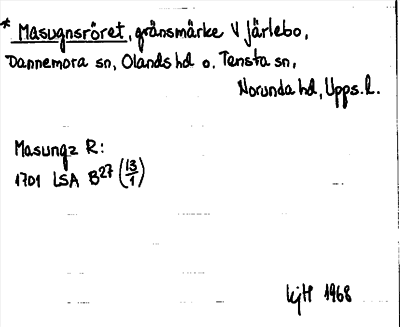 * Masugnsröret, gränsmärke V Järlebo,
Dannemora sn, Olands hd o. Tensta sn,
Norunda hd, Upps. l.
Masungz R:
1701 LSA B27 (13/1)
1968